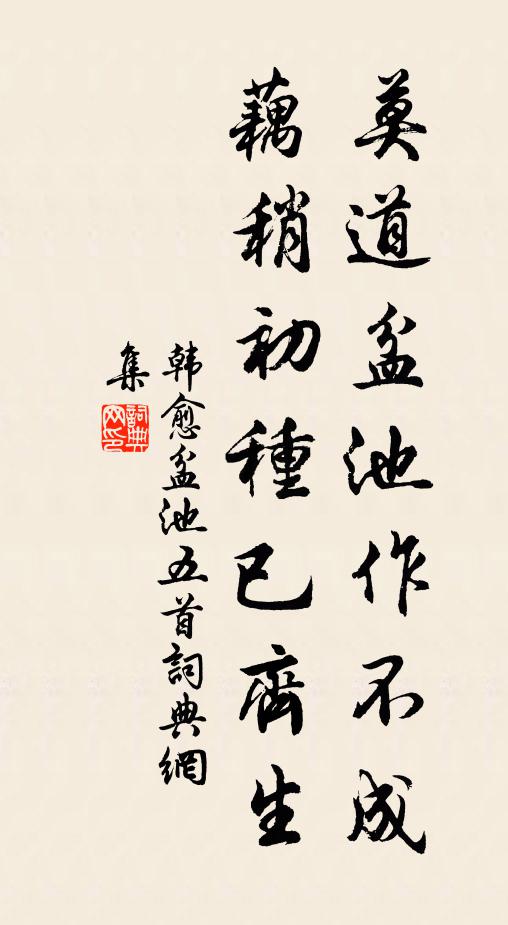 莫道盆池作不成
藕稍初種已齊生
韩愈盆池五首詞典網
集
詞典
网印